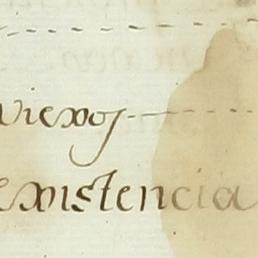 viexos
existencia